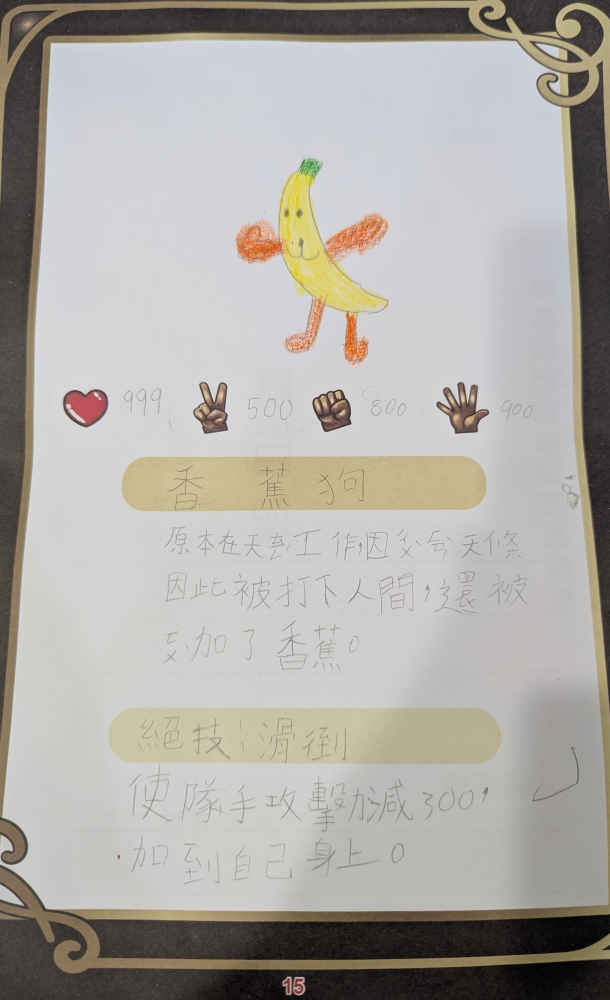 999 500 800 900
香蕉狗
原本在天工作,因天條
因此被打下人間,還被
加了香蕉。
絕技:滑倒
使隊手攻擊力減300,
加到自己身上。
15